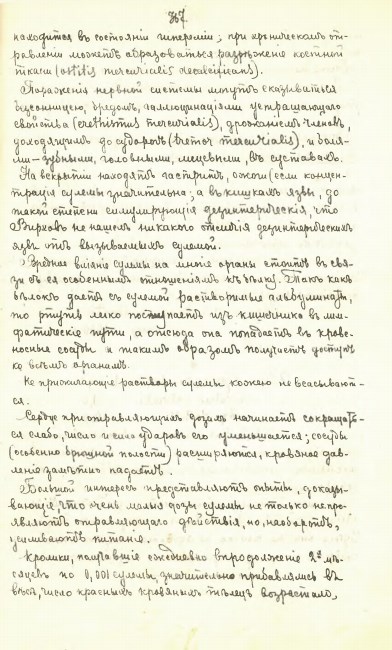 367
находится въ состоянiи гиперемiи; при хроническомъ от-
равленiи можетъ образоваться разрѣженiе костной
ткани (ostitis mercurialis decalcificans).
Пораженiя нервной системы могутъ сказываться
безсонницею, бредомъ, галлюцинацiями устрашающаго
свойства (erethismus mercurialis), дрожанiемъ членовъ,
доходящимъ до судорогъ (tremor mercurialis), и боля-
ми - зубными, головными, мышечными, въ суставахъ.
На вскрытiи находятъ гастритъ, ожоги (если концен-
трацiя сулемы значительна; а въ кишкахъ язвы, до
такой степени симулирующiя дезинтерическiя, что
Вирховъ не нашелъ никакого отличiя дезинтерическихъ
язвъ отъ вызываемыхъ сулемой.
Вредное влiянiе сулемы на многiе органы стоитъ въ свя-
зи съ ея особеннымъ отношенiемъ къ бѣлку. Такъ какъ
бѣлокъ даетъ съ сулемой растворимые альбуминаты,
то ртуть легко поступаетъ изъ кишечника въ лим-
фатическiе пути, а отсюда она попадаетъ въ крове-
носные сосуды и такимъ образомъ получаетъ доступъ
ко всѣмъ органамъ.
Не прижигающiе растворы сулемы кожею не всасывают-
ся.
Сердце при отравляющихъ дозахъ начинаетъ сокращать-
ся слабо, число и сила ударовъ его уменьшается; сосуды
(особенно брюшной полости) расширяются, кровяное дав-
ленiе замѣтно падаетъ.
Большой интересъ представляютъ опыты, доказы-
вающiе, что очень малыя дозы сулемы не только не про-
являютъ отравляющаго дѣйствiя, но, наоборотъ,
усиливаютъ питанiе.
Кролики, получавшiе ежедневно впродолженiе 2хъ мѣ-
сяцевъ по 0,001 сулемы, значительно прибавлялись въ
вѣсѣ, число красныхъ кровяныхъ тѣлецъ возрастало,